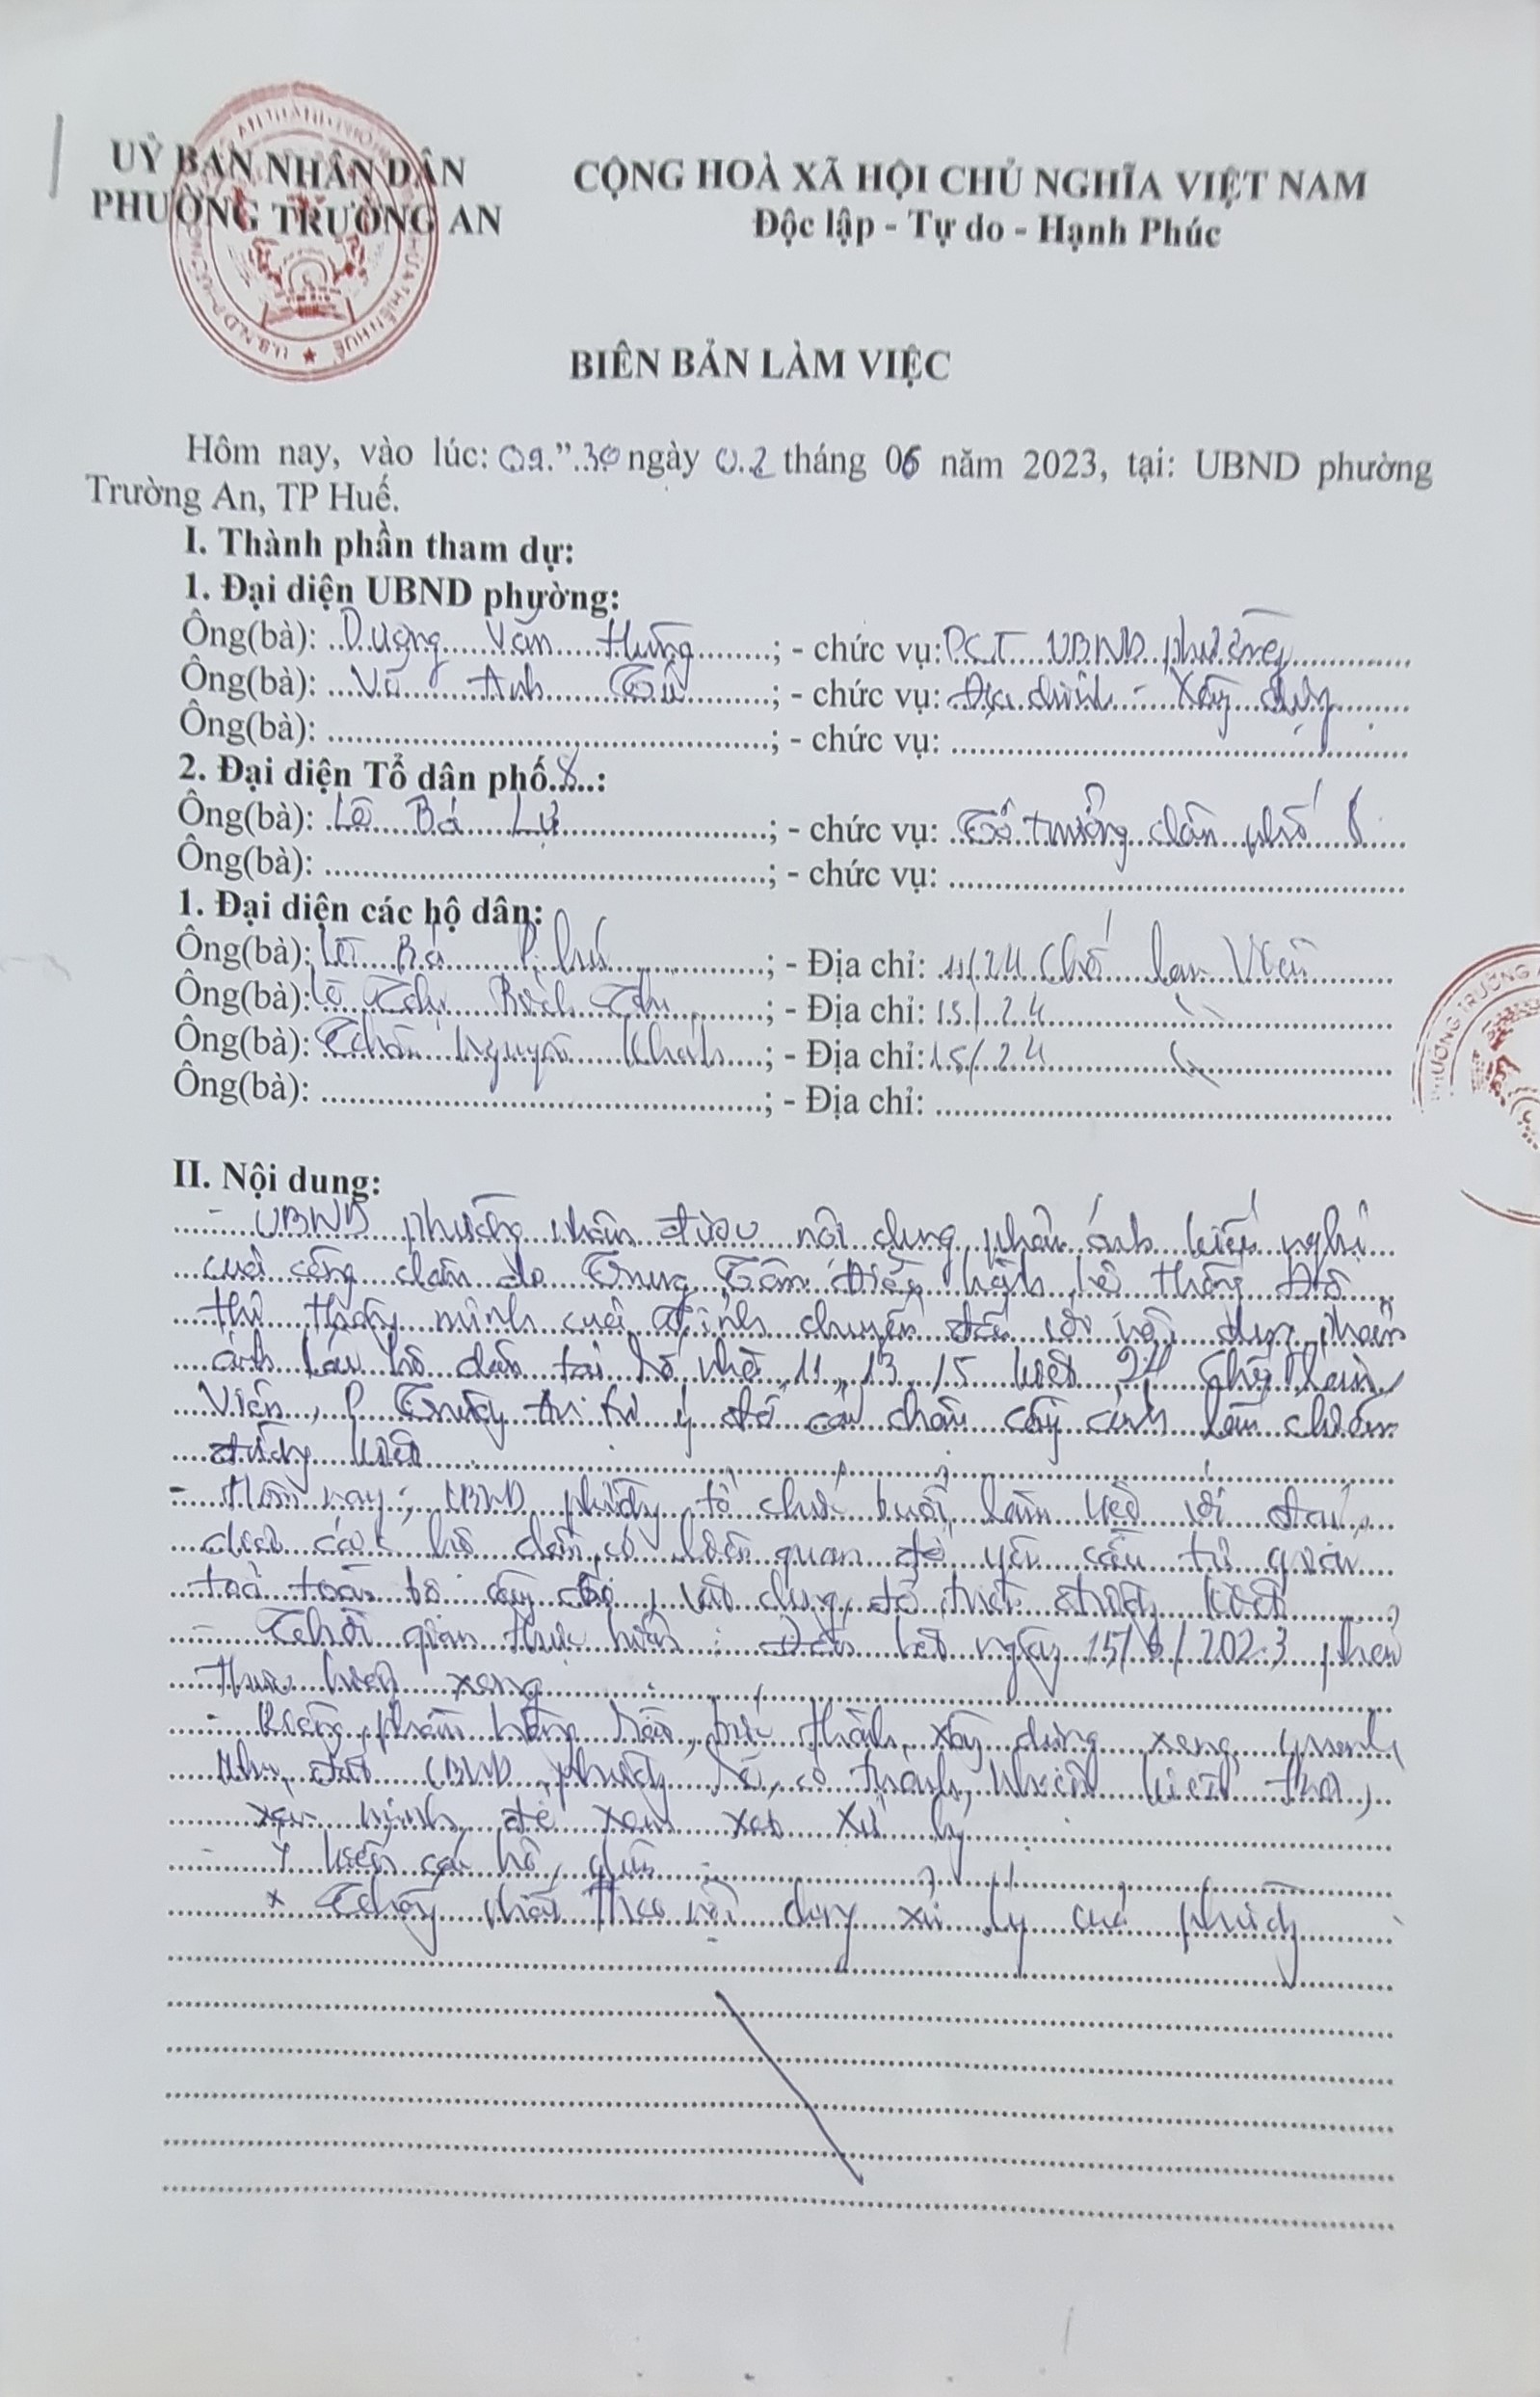 UỶ BAN NHÂN DÂN
PHƯỜNG TRƯỜNG AN
CỘNG HOÀ XÃ HỘI CHỦ NGHĨA VIỆT NAM
Độc lập - Tự do - Hạnh Phúc
BIÊN BẢN LÀM VIỆC
Hôm nay, vào lúc: 09.".30 ngày 0.2 tháng 06 năm 2023, tại: UBND phường
Trường An, TP Huế.
I. Thành phần tham dự:
1. Đại diện UBND phường:
Ông(bà): Dương Văn Hùng; - chức vụ: PCT UBND phường
Ông(bà): Võ Anh Tú; - chức vụ: Địa chính - Xây dựng
Ông(bà): ; - chức vụ:
2. Đại diện Tổ dân phố 8:
Ông(bà): Lê Bá Lự; - chức vụ: Tổ trưởng dân phố 8
Ông(bà): ; - chức vụ:
1. Đại diện các hộ dân:
Ông(bà): Lê Bá; - Địa chỉ: 11/24 Chế Lan Viên
Ông(bà): Lê Thị Bích; - Địa chỉ: 15/24 "
Ông(bà): Nguyên; - Địa chỉ: 15/24 "
Ông(bà): ; - Địa chỉ:
II. Nội dung:
- UBND phường nhận được nội dung phản ánh kiến nghị
của công dân do Trung Tâm Điều hành hệ thống Đô
thị thông minh của tỉnh chuyển đến với nội dung phản
ánh các hộ dân tại số nhà 11, 13, 15 kiệt 24 Chế Lan
Viên, P Trường An tự ý để các chậu cây cảnh lấn chiếm
đường kiệt
- Hôm nay, UBND phường tổ chức buổi làm việc với đại
diện các hộ dân có liên quan để yêu cầu tự giải
toả toàn bộ cây, vật dụng để trên đường kiệt
- Thời gian thực hiện: Đến hết ngày 15/6/2023 phải
thực hiện xong
- Riêng phần hàng rào, bức thành xây dựng xong quanh
khu đất UBND phường sẽ có trách nhiệm kiểm tra,
xác minh để xem xét xử lý
- Ý kiến các hộ dân:
x Thống nhất theo nội dung xử lý của phường